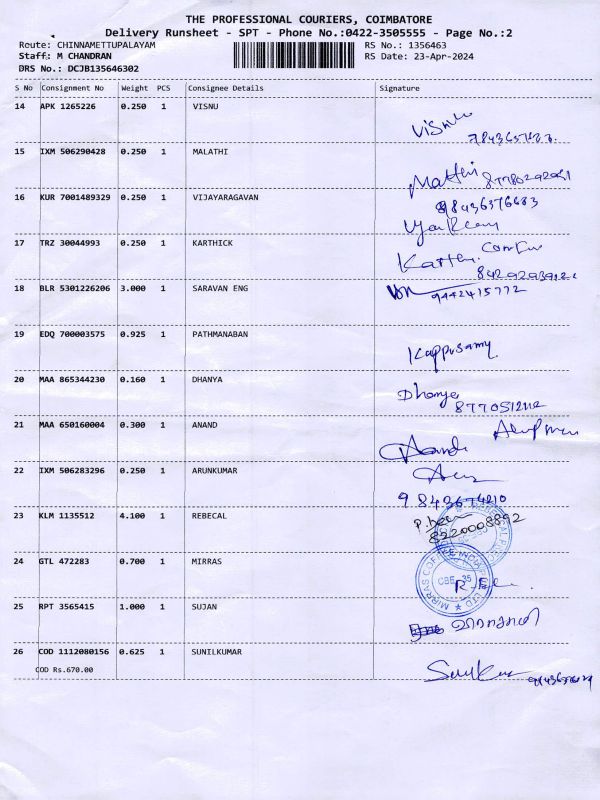 THE PROFESSIONAL COURIERS, COIMBATORE
Delivery Runsheet - SPT - Phone No.:0422-3505555 - Page No.:2
Route: CHINNAMETTUPALAYAM RS No.: 1356463
Staff: M CHANDRAN RS Date: 23-Apr-2024
DRS No.: DCJB135646302
S No Consignment No Weight PCS Consignee Details Signature
14 APK 1265226 0.250 1 VISNU
15 IXM 506290428 0.250 1 MALATHI
16 KUR 7001489329 0.250 1 VIJAYARAGAVAN
98436376683
17 TRZ 30044993 0.250 1 KARTHICK
18 BLR 5301226206 3.000 1 SARAVAN ENG
9442415772
19 EDQ 700003575 0.925 1 PATHMANABAN
Kappusamy
20 MAA 865344230 0.160 1 DHANYA
Dhanya
21 MAA 650160004 0.300 1 ANAND
Anand
22 IXM 506283296 0.250 1 ARUNKUMAR
9843674210
23 KLM 1135512 4.100 1 REBECAL
8220008892
24 GTL 472283 0.700 1 MIRRAS
CBE 35
25 RPT 3565415 1.000 1 SUJAN
26 COD 1112080156 0.625 1 SUNILKUMAR
COD Rs.670.00